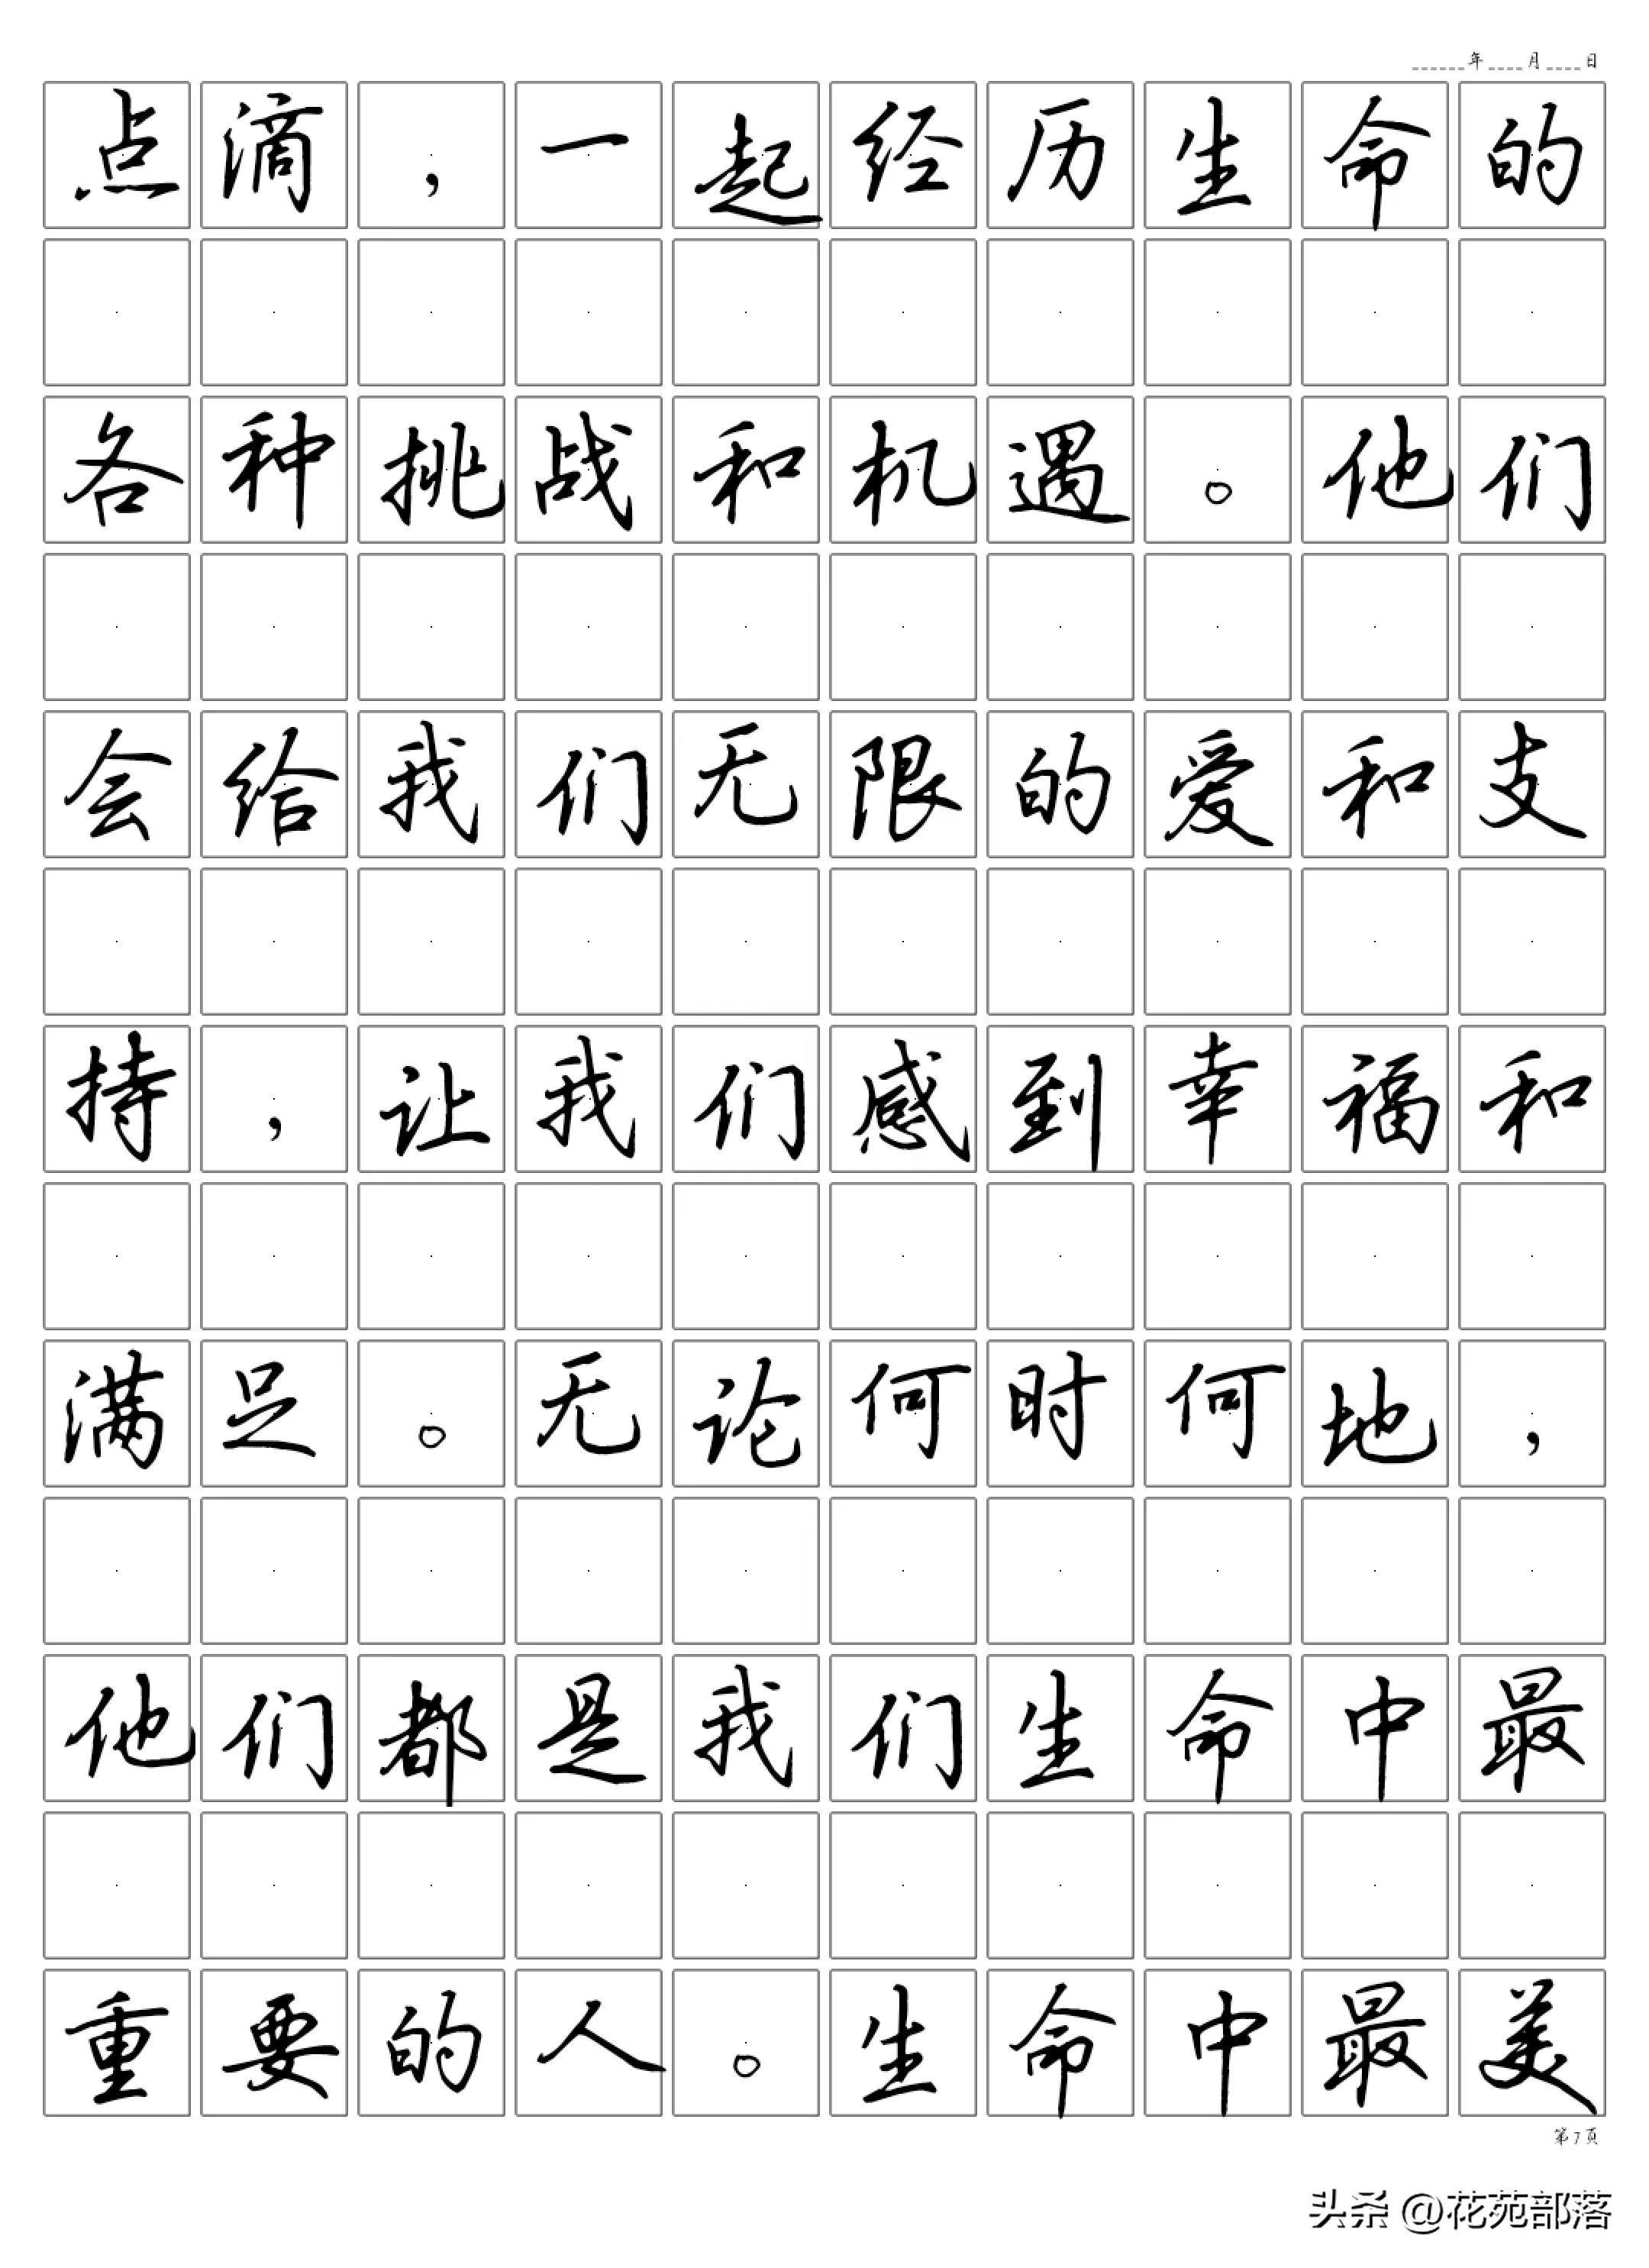 年 月 日
点滴，一起经历生命的
各种挑战和机遇。他们
会给我们无限的爱和支
持，让我们感到幸福和
满足。无论何时何地，
他们都是我们生命中最
重要的人。生命中最美
第7页
头条 @花苑部落